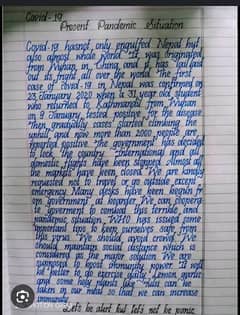 Covid-19
Present Pandemic Situation
Covid-19 hasnot only engulfed Nepal but
also almost whole world. It was originated
from Wuhan, in China, and it has spread
out its fright all over the world. The first
case of covid-19 in Nepal was confirmed on
23 January 2020 when a 31 year old student,
who returned to Kathmandu from Wuhan
on 9 January, tested positive for the disease
Then gradually cases started climbing the
uphill and now more than 2000 people are
reported positive. The government has decided
to lock the country. International and
domestic flights have been stopped. Almost all
the markets have been closed. We are kindly
requested not to travel or go outside except
emergency. Many steps have been
our government at boarder. We can
government to combat this terrible and
pandemic situation. WHO has issued some
important tips to keep ourselves safe from
this virus. We should avoid crowd. We
should maintain social distance which is
considered as the major solution. We are
supposed to boost immunity power. It will
be better to do exercise daily. Lemon, garlic
and some holy plants like Tulsi can be
taken in our meal so that we can increase
immunity.
Let's be alert but let's not be panic